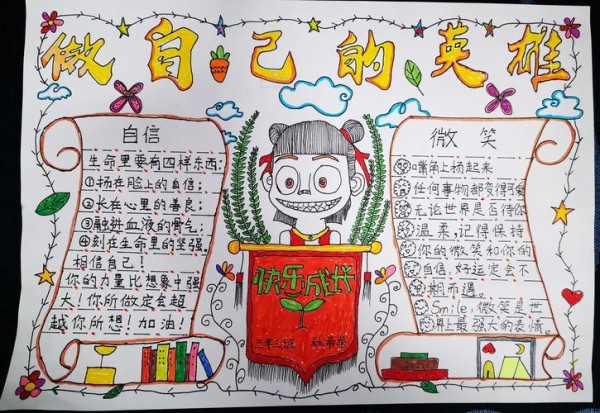 做自己的英雄
自信
生命里要有四样东西:
①扬在脸上的自信;
②长在心里的善良;
③融进血液的骨气;
④刻在生命里的坚强。
相信自己!
你的力量比想象中强
大!你所做定会超
越你所想!加油!
快乐成长
三年三班
微笑
嘴角上扬起来
任何事物都变得可爱
无论世界是否待你
温柔,记得保持
你的微笑和你的
自信,好运定会不
期而遇。
Smile,微笑是世
界上最强大的表情。